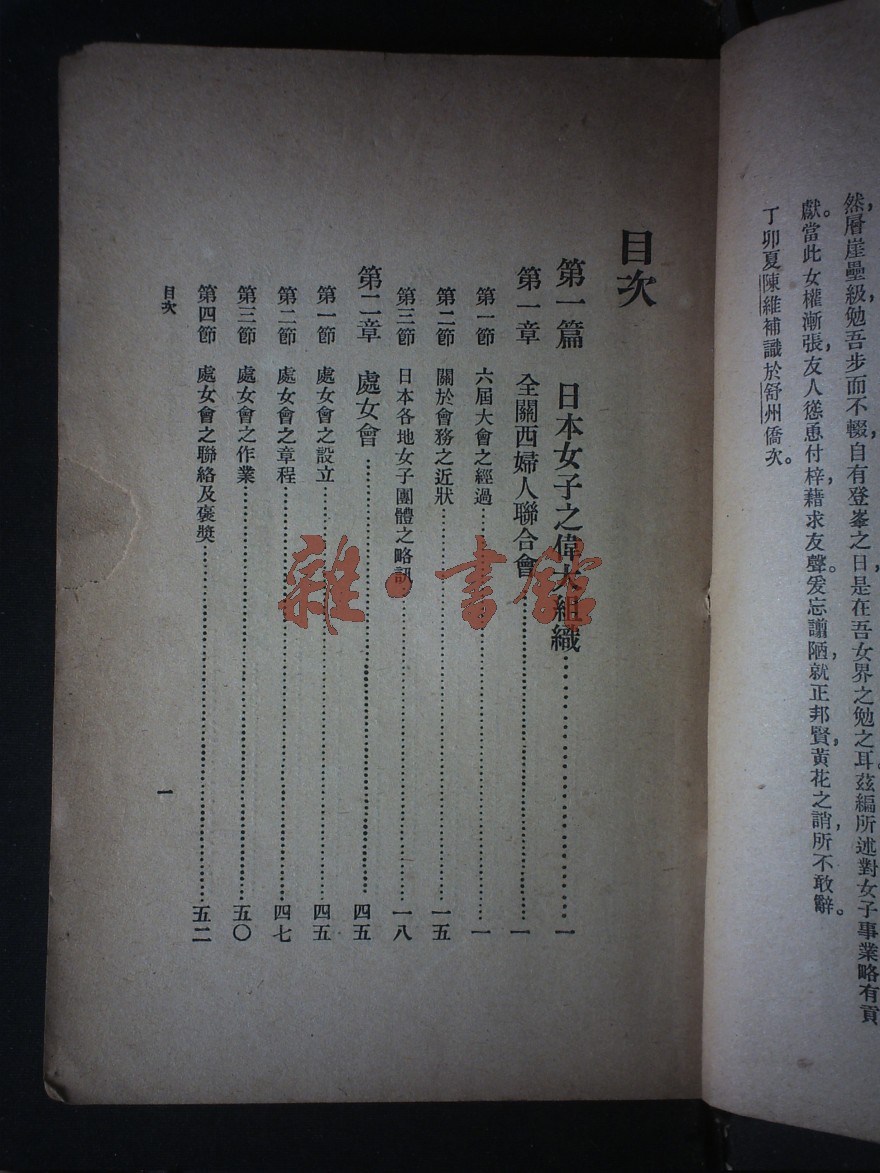 然層崖壘級勉吾步而不輟，自有登峯之日，是在吾女界之勉之耳。茲編所述對女子事業略有貢
獻。當此女權漸張，友人慫恿付梓，藉求友聲。爰忘譾陋，就正邦賢，黃花之誚，所不敢辭。
丁卯夏陳維補識於舒州僑次。
目次
第一篇 日本女子之偉大組織……一
第一章 全關西婦人聯合會……一
第一節 六屆大會之經過……一
第二節 關於會務之近狀……一五
第三節 日本各地女子團體之略訊……一八
第二章 處女會……四五
第一節 處女會之設立……四五
第二節 處女會之章程……四七
第三節 處女會之作業……五〇
第四節 處女會之聯絡及褒獎……五二
目次
一
雜·書館